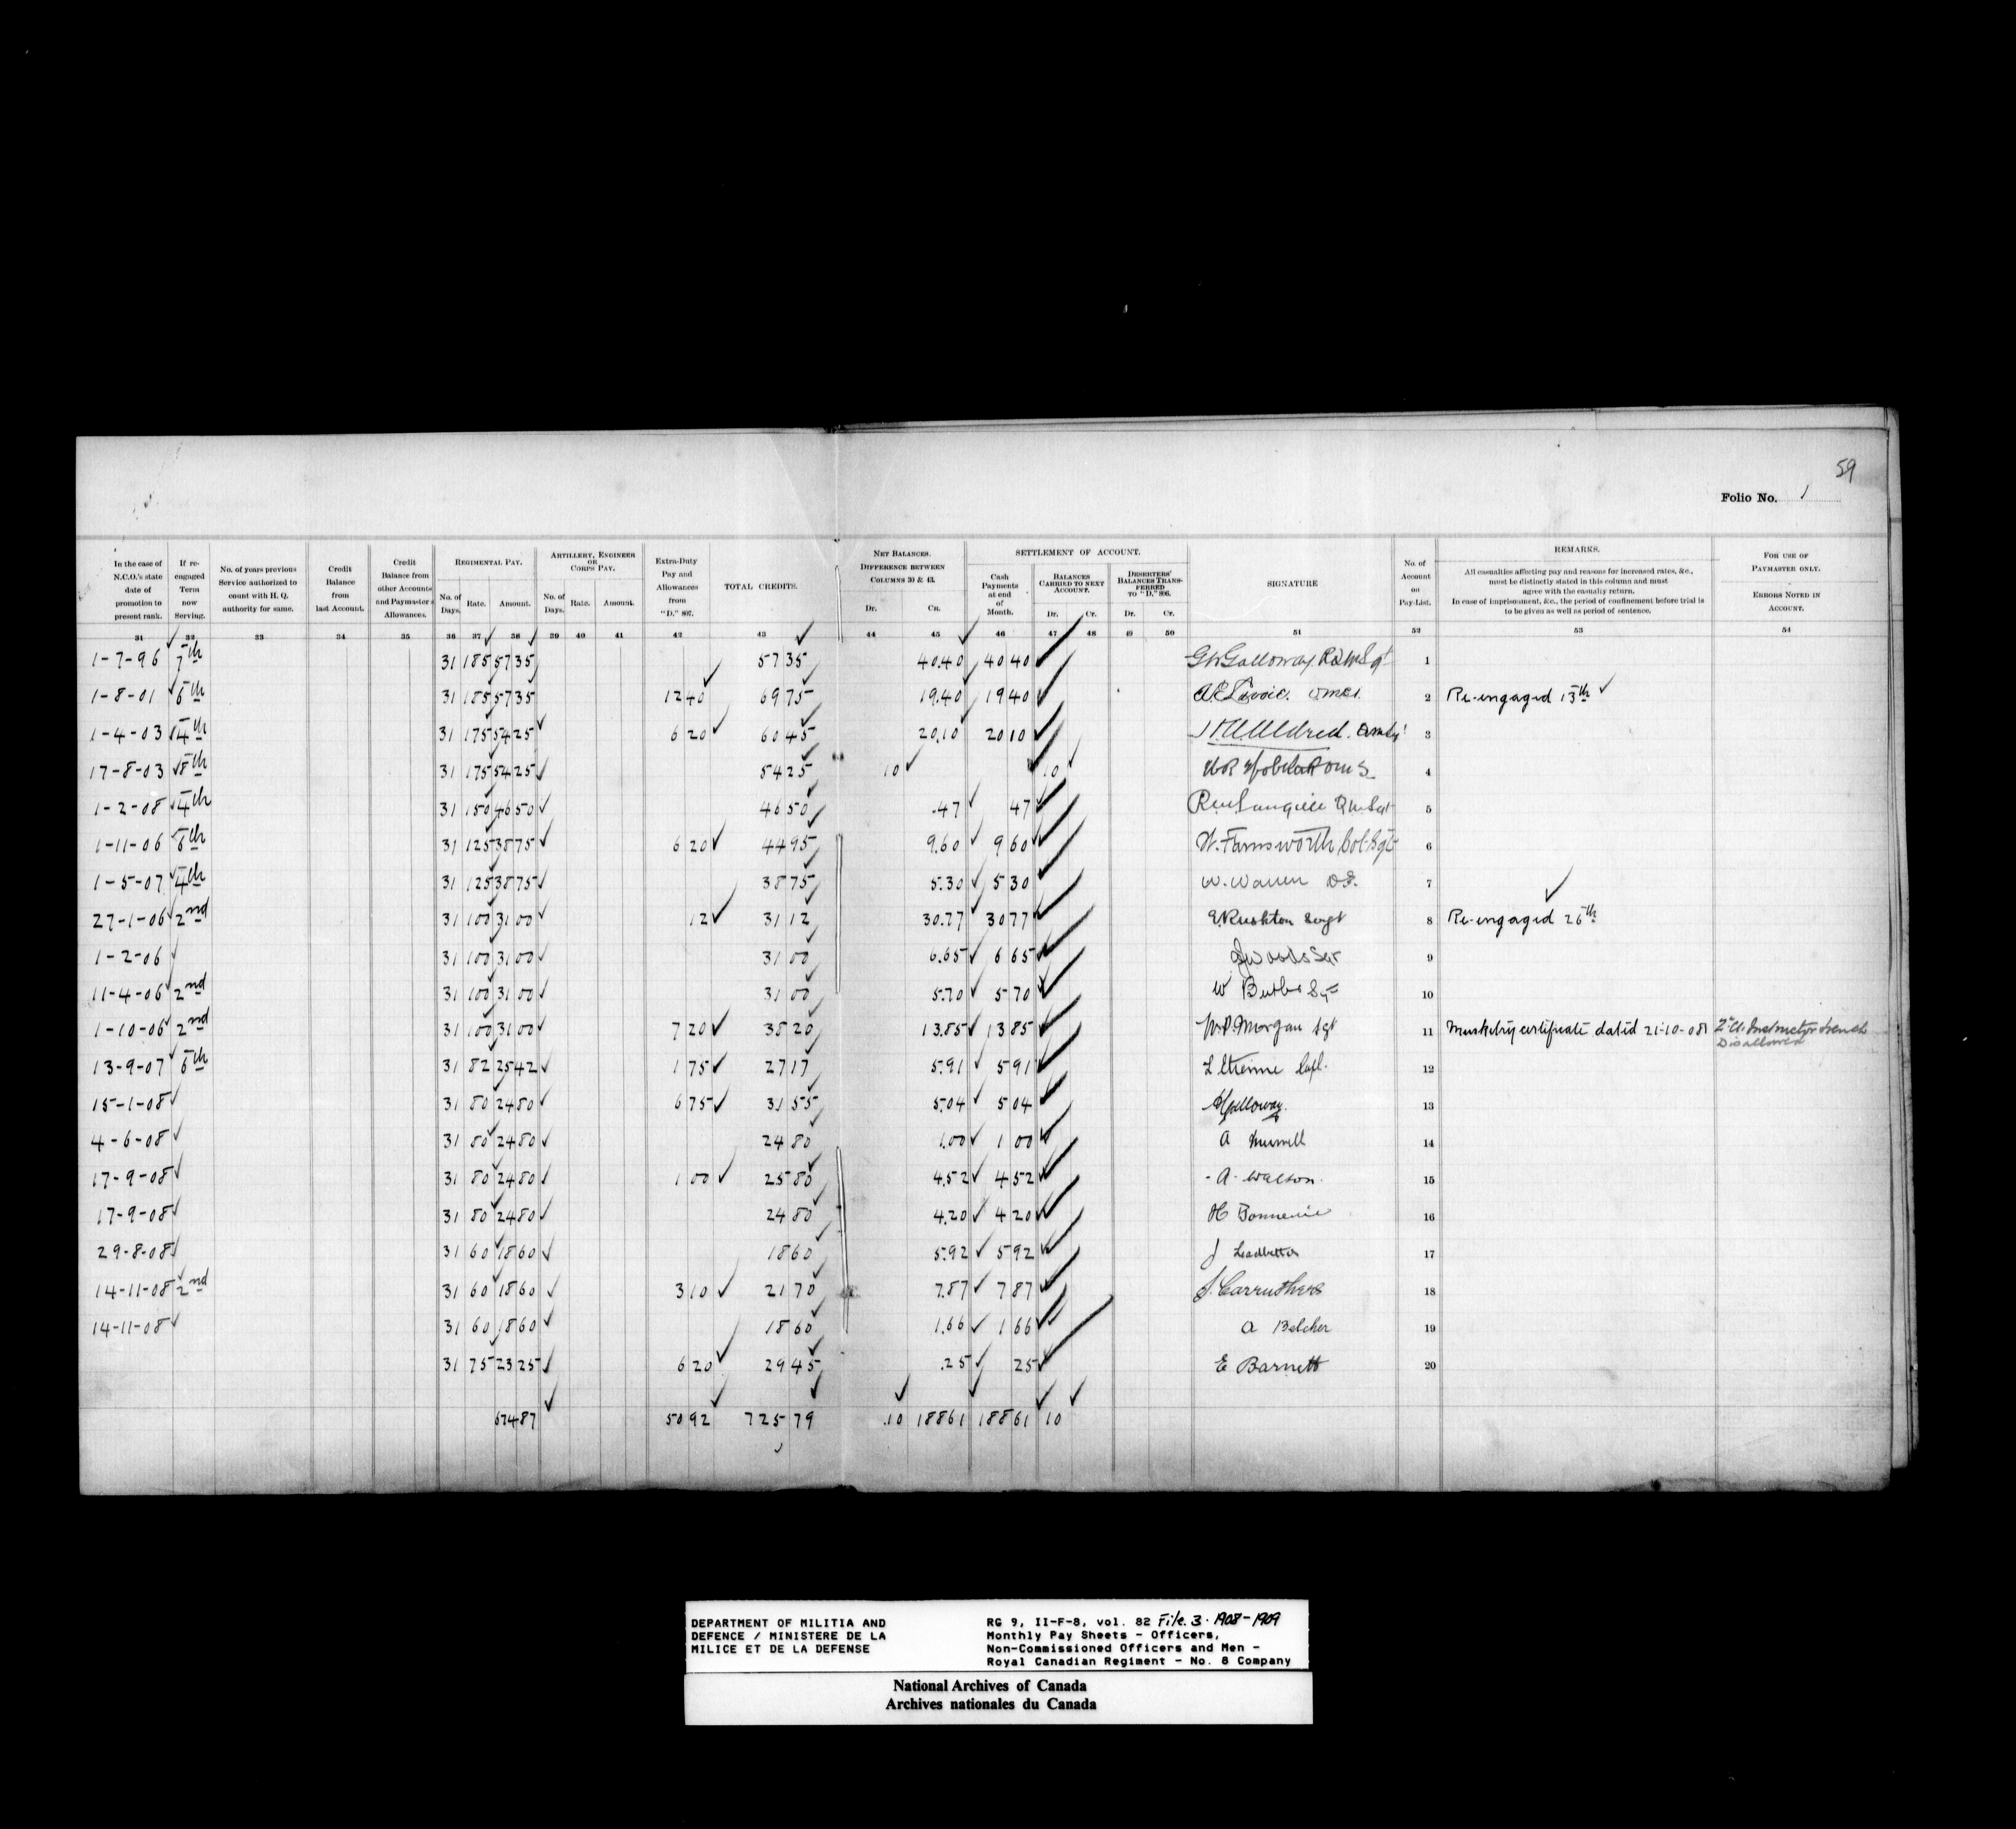 59
Folio No. 1
In the case of N.C.O.'s state date of promotion to present rank. | If re-engaged Term now Serving. | No. of years previous Service authorized to count with H. Q. authority for same. | Credit Balance from last Account. | Credit Balance from other Accounts and Paymaster's Allowances. | REGIMENTAL PAY. No. of Days. Rate. Amount. | ARTILLERY, ENGINEER OR CORPS PAY. No. of Days. Rate. Amount. | Extra-Duty Pay and Allowances from "D." 807. | TOTAL CREDITS. | NET BALANCES. DIFFERENCE BETWEEN COLUMNS 30 & 43. Dr. Cr. | SETTLEMENT OF ACCOUNT. Cash Payments at end of Month. | BALANCES CARRIED TO NEXT ACCOUNT. Dr. Cr. | DESERTERS' BALANCES TRANSFERRED TO "D." 806. Dr. Cr. | SIGNATURE | No. of Account on Pay-List. | REMARKS. All casualties affecting pay and reasons for increased rates, &c., must be distinctly stated in this column and must agree with the casualty return. In case of imprisonment, &c., the period of confinement before trial is to be given as well as period of sentence. | FOR USE OF PAYMASTER ONLY. ERRORS NOTED IN ACCOUNT.
31 32 33 34 35 36 37 38 39 40 41 42 43 44 45 46 47 48 49 50 51 52 53 54
1-7-96 7th 31 185 5735 5735 40.40 4040 Galloway 1
1-8-01 6th 31 185 5735 1240 6975 19.40 1940 2 Re-engaged 13th
1-4-03 4th 31 175 5425 620 6045 20.10 2010 Aldred. 3
17-8-03 8th 31 175 5425 5425 10 10 4
1-2-08 4th 31 150 4650 4650 .47 47 QMSgt 5
1-11-06 8th 31 125 3875 620 4495 9.60 960 W. Farnsworth Col-Sgt 6
1-5-07 4th 31 125 3875 3875 5.30 530 W. Warren 7
27-1-06 2nd 31 100 3100 12 3112 30.77 3077 Rushton Sergt 8 Re-engaged 26th
1-2-06 31 100 3100 3100 6.65 665 Woods Sgt 9
11-4-06 2nd 31 100 3100 3100 5.70 570 W 10
1-10-06 2nd 31 100 3100 720 3820 13.85 1385 Morgan Sgt 11 Musketry certificate dated 21-10-08 Instructor French
Disallowed
13-9-07 6th 31 82 2542 175 2717 5.91 591 Etienne 12
15-1-08 31 80 2480 675 3155 5.04 504 Galloway 13
4-6-08 31 80 2480 2480 1.00 100 A 14
17-9-08 31 80 2480 100 2580 4.52 452 A. Watson 15
17-9-08 31 80 2480 2480 4.20 420 H 16
29-8-08 31 60 1860 1860 5.92 592 J Leadbetter 17
14-11-08 2nd 31 60 1860 310 2170 7.87 787 J. Carruthers 18
14-11-08 31 60 1860 1860 1.66 166 A Belcher 19
31 75 2325 620 2945 .25 25 E Barnett 20
67487 5092 72579 .10 18861 18861 10
DEPARTMENT OF MILITIA AND
DEFENCE / MINISTERE DE LA
MILICE ET DE LA DEFENSE
RG 9, II-F-8, vol. 82 File 3. 1908-1909
Monthly Pay Sheets - Officers,
Non-Commissioned Officers and Men -
Royal Canadian Regiment - No. 8 Company
National Archives of Canada
Archives nationales du Canada